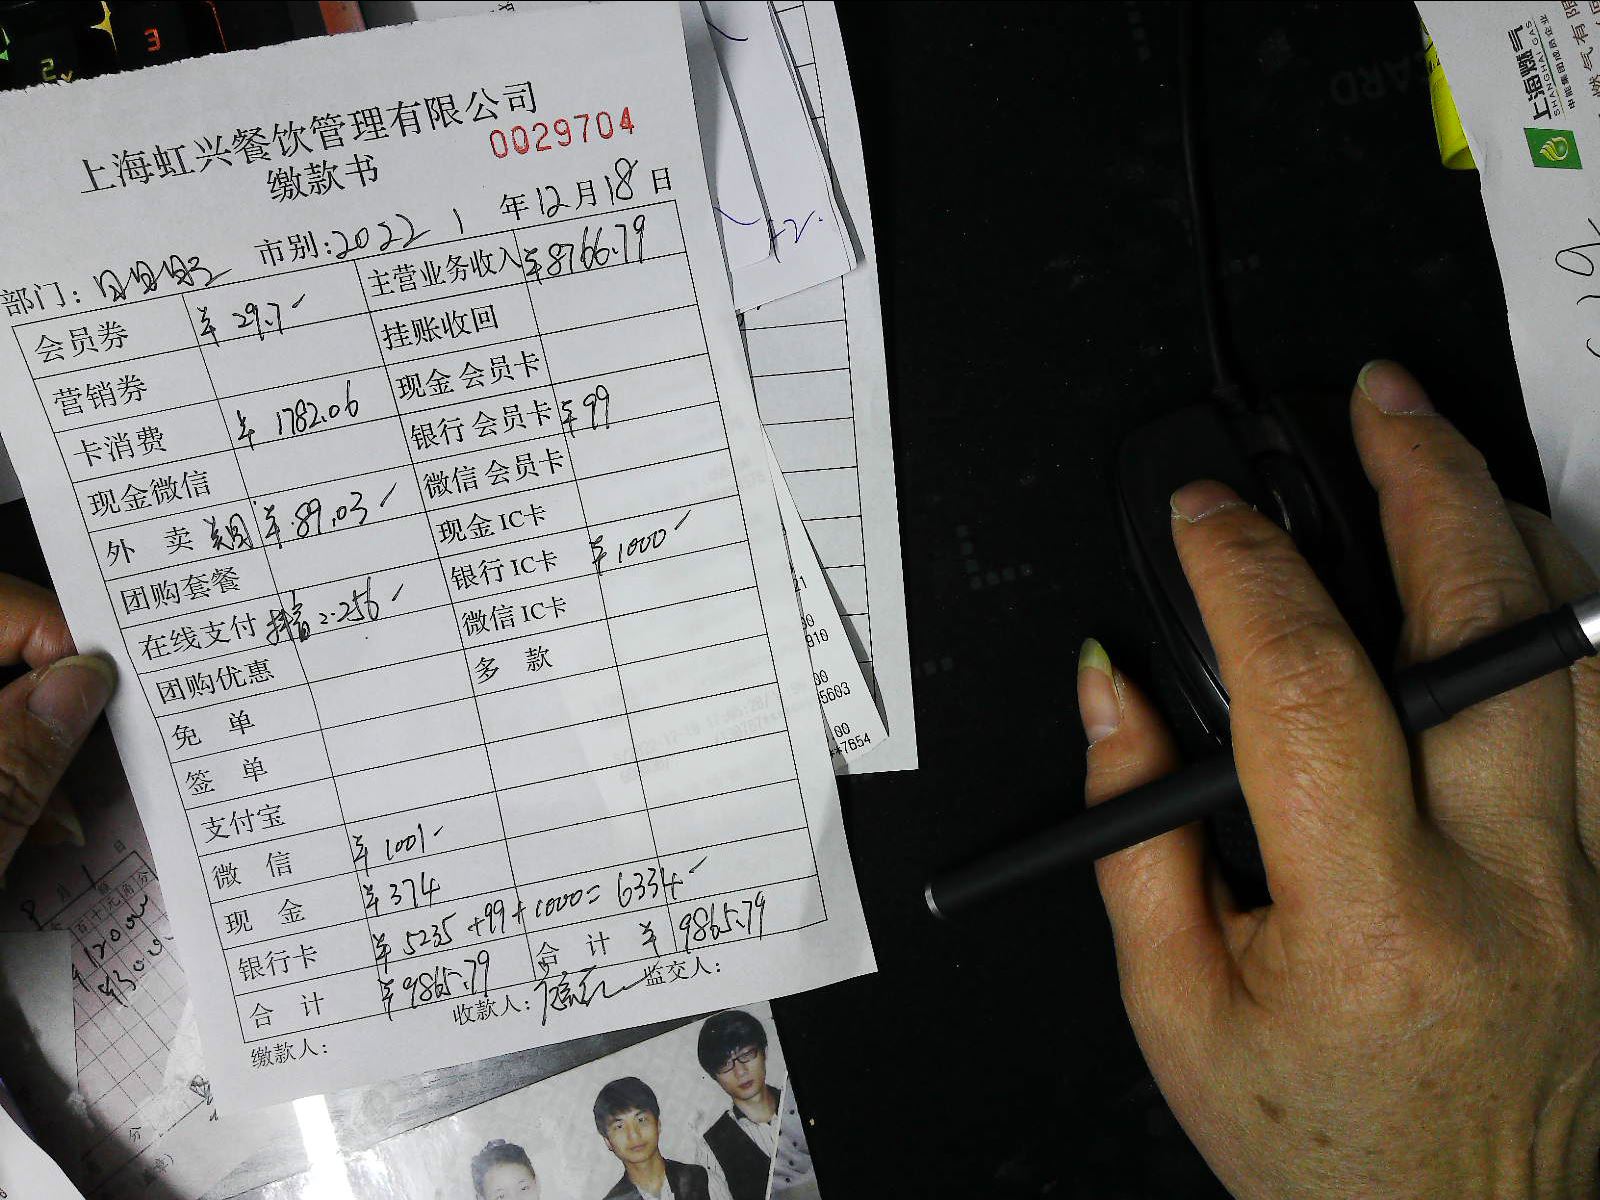 上海虹兴餐饮管理有限公司
缴款书
0029704
部门:
市别:2022 1 年12月18日
会员券 ¥ 29.7 主营业务收入 ¥8766.79
营销券 挂账收回
卡消费 ¥ 1782.06 现金会员卡
现金微信 银行会员卡 ¥99
外 卖 美团 ¥ 89.03 微信会员卡
团购套餐 现金IC卡
在线支付 抖音 2.256 银行IC卡 ¥ 1000
团购优惠 微信IC卡
免 单 多 款
签 单
支付宝
微 信 ¥ 1001
现 金 ¥ 374
银行卡 ¥ 5235 +99+1000= 6334
合 计 ¥9865.79 合 计 ¥ 9865.79
缴款人: 收款人: 监交人:
上海燃气
SHANGHAI GAS
申能集团成员企业
燃气有限
910
5603
.00
**7654
3
2